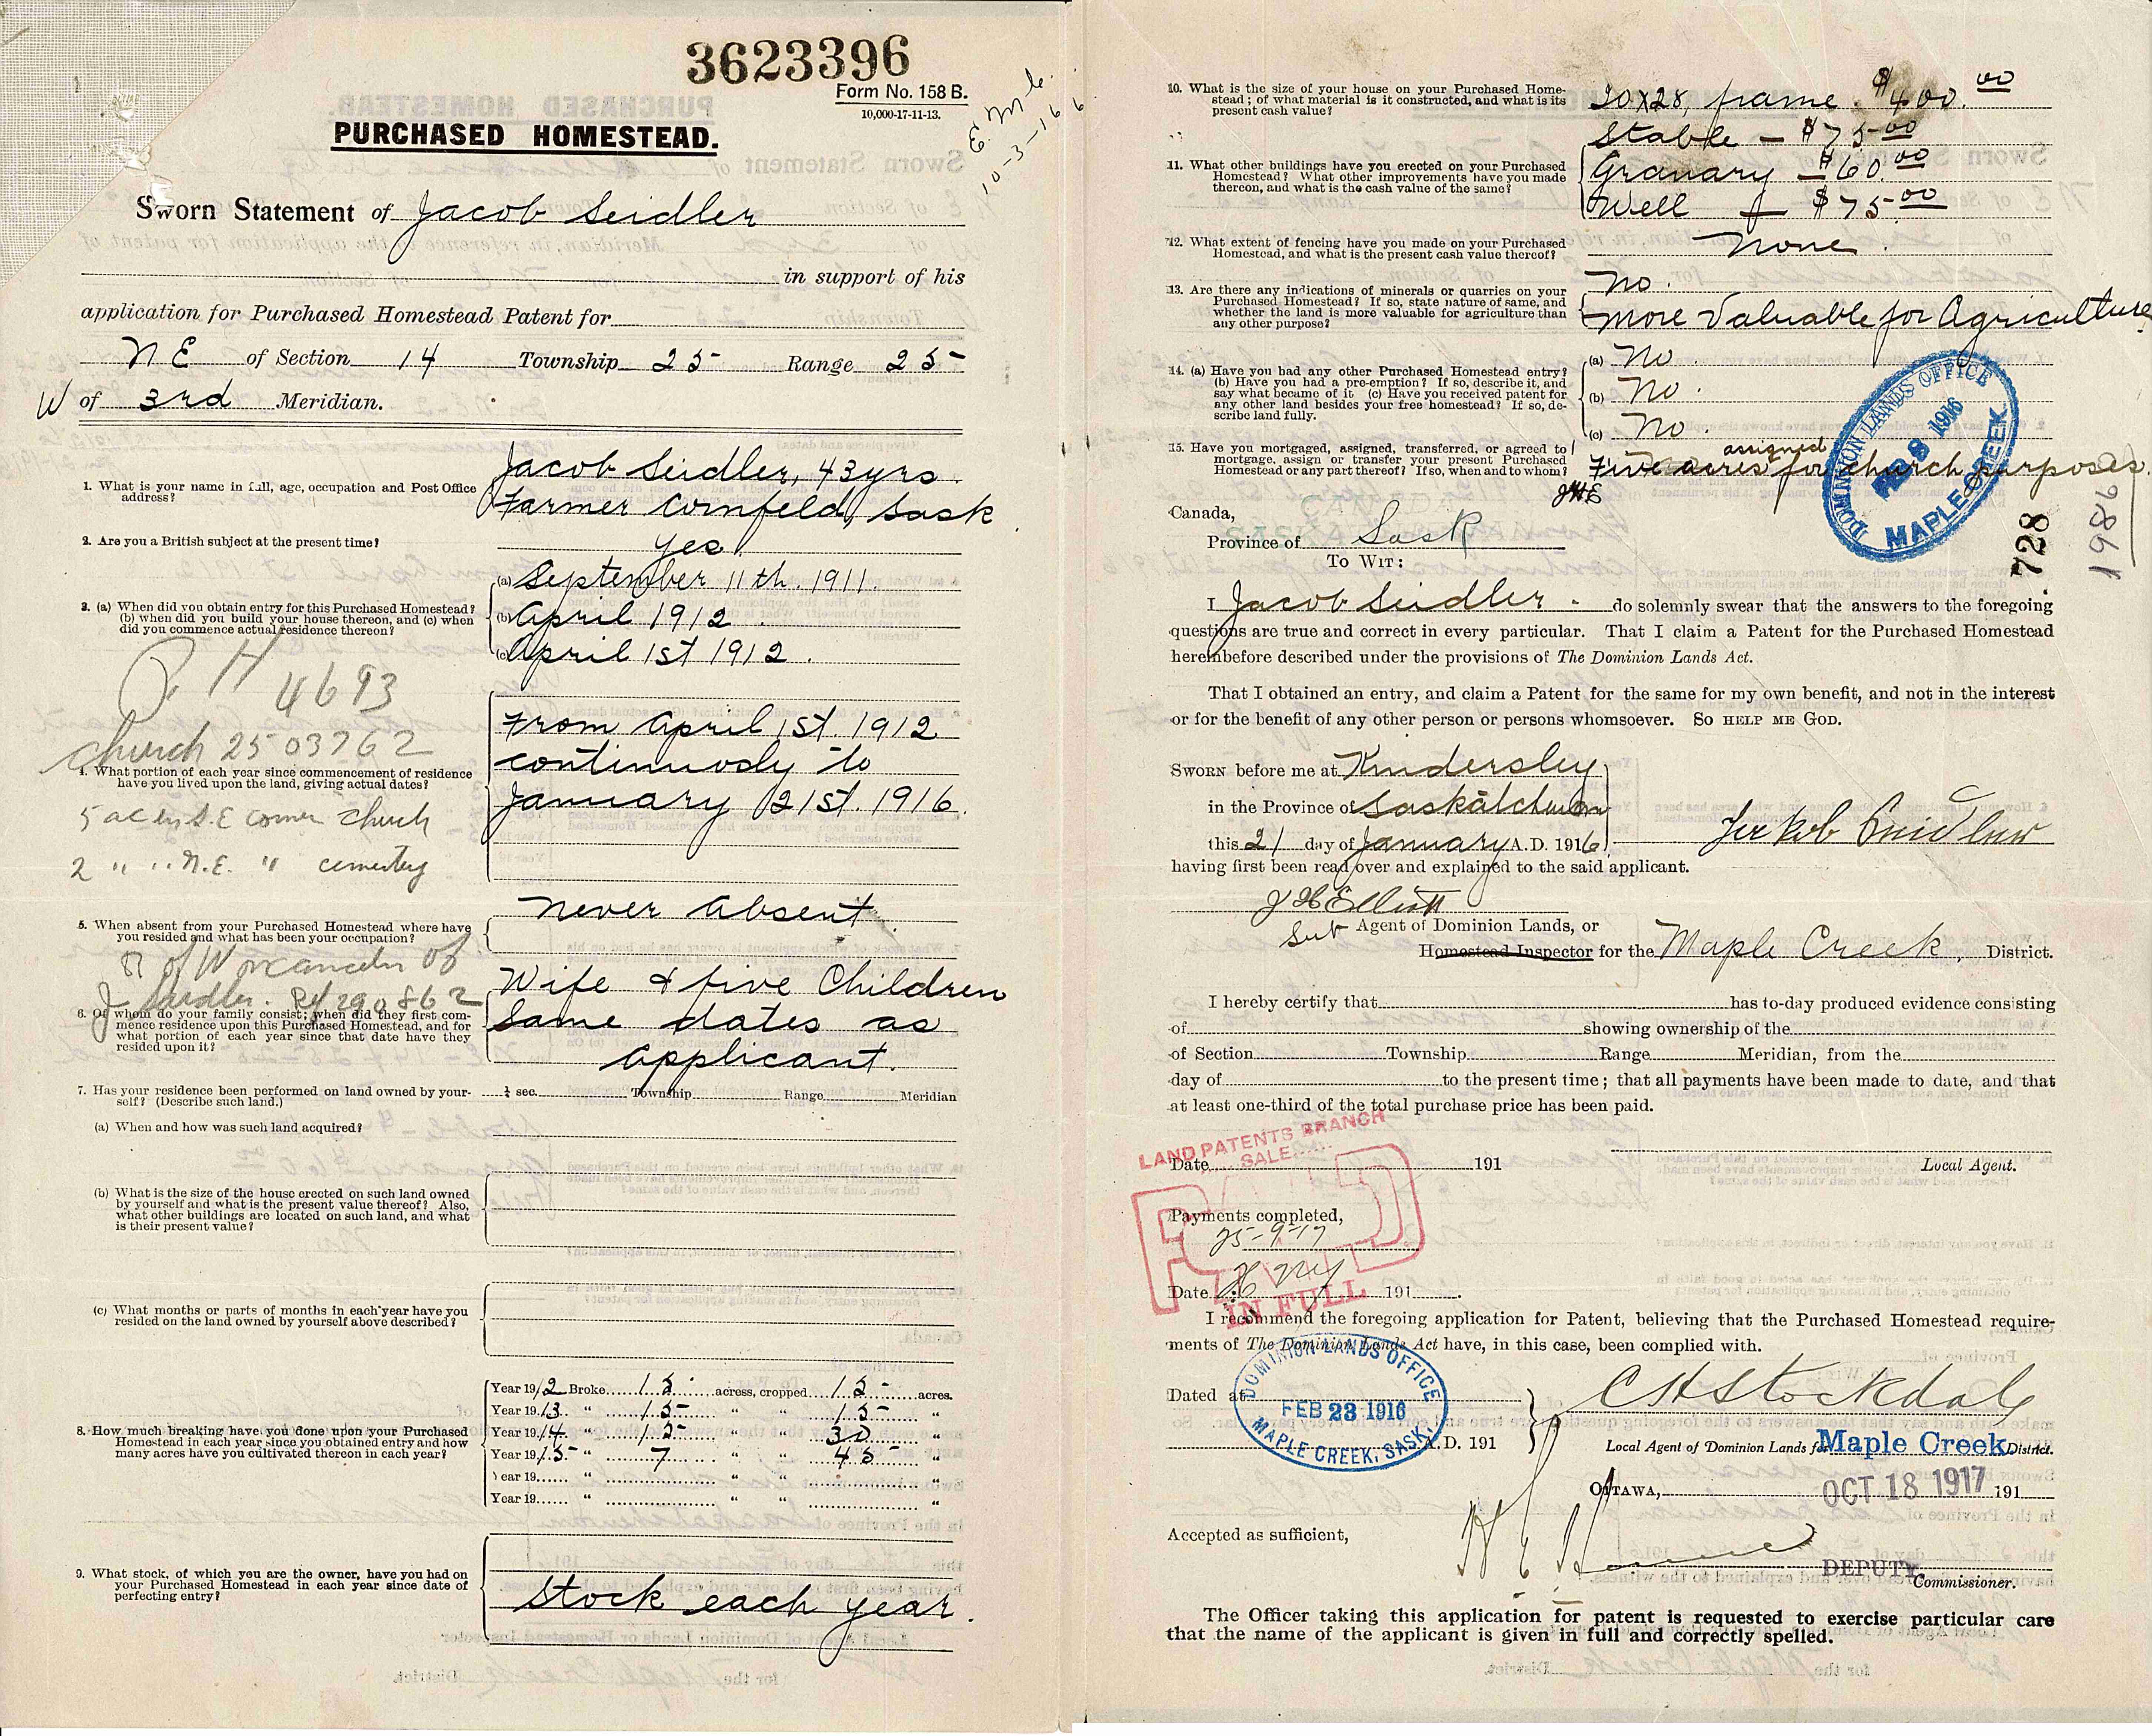 3623396
Form No. 158 B.
10,000-17-11-13.
10-3-16
PURCHASED HOMESTEAD.
Sworn Statement of Jacob Seidler
in support of his
application for Purchased Homestead Patent for
N E of Section 14 Township 25 Range 25
W of 3rd Meridian.
1. What is your name in full, age, occupation and Post Office
address?
Jacob Seidler, 43yrs.
Farmer Cornfeld, Sask
2. Are you a British subject at the present time?
yes.
3. (a) When did you obtain entry for this Purchased Homestead?
(b) when did you build your house thereon, and (c) when
did you commence actual residence thereon?
(a) September 11th. 1911.
(b) April 1912.
(c) April 1st 1912.
P H 4693
church 2503762
4. What portion of each year since commencement of residence
have you lived upon the land, giving actual dates?
From April 1st. 1912
continuosly to
January 21st. 1916.
5 ac in S.E corner church
2 " " N.E. " cemetery
5. When absent from your Purchased Homestead where have
you resided and what has been your occupation?
never absent.
J Seidler. Ref 290862
6. Of whom do your family consist; when did they first com-
mence residence upon this Purchased Homestead, and for
what portion of each year since that date have they
resided upon it?
Wife & five Children
same dates as
applicant.
7. Has your residence been performed on land owned by your-
self? (Describe such land.)
¼ sec. Township Range Meridian
(a) When and how was such land acquired?
(b) What is the size of the house erected on such land owned
by yourself and what is the present value thereof? Also,
what other buildings are located on such land, and what
is their present value?
(c) What months or parts of months in each year have you
resided on the land owned by yourself above described?
8. How much breaking have you done upon your Purchased
Homestead in each year since you obtained entry and how
many acres have you cultivated thereon in each year?
Year 1912 Broke 15 acress, cropped 15 acres.
Year 1913 " 15 " " 15 "
Year 1914 " 15 " " 30 "
Year 1915 " 7 " " 45 "
Year 19 " " " "
Year 19 " " " "
9. What stock, of which you are the owner, have you had on
your Purchased Homestead in each year since date of
perfecting entry?
Stock each year.
10. What is the size of your house on your Purchased Home-
stead; of what material is it constructed, and what is its
present cash value?
20x28, frame. $400.00
Stable - $75.00
11. What other buildings have you erected on your Purchased
Homestead? What other improvements have you made
thereon, and what is the cash value of the same?
Granary - $60.00
Well - $75.00
12. What extent of fencing have you made on your Purchased
Homestead, and what is the present cash value thereof?
none.
13. Are there any indications of minerals or quarries on your
Purchased Homestead? If so, state nature of same, and
whether the land is more valuable for agriculture than
any other purpose?
No.
More Valuable for Agriculture
14. (a) Have you had any other Purchased Homestead entry?
(b) Have you had a pre-emption? If so, describe it, and
say what became of it (c) Have you received patent for
any other land besides your free homestead? If so, de-
scribe land fully.
(a) No.
(b) No.
(c) No.
15. Have you mortgaged, assigned, transferred, or agreed to
mortgage, assign or transfer your present Purchased
Homestead or any part thereof? If so, when and to whom?
assigned
Five acres for church purposes.
JHE
DOMINION LANDS OFFICE
FEB 8 1916
MAPLE CREEK
728
Canada,
Province of Sask
To Wit:
I Jacob Seidler - do solemnly swear that the answers to the foregoing
questions are true and correct in every particular. That I claim a Patent for the Purchased Homestead
hereinbefore described under the provisions of The Dominion Lands Act.
That I obtained an entry, and claim a Patent for the same for my own benefit, and not in the interest
or for the benefit of any other person or persons whomsoever. So HELP ME GOD.
SWORN before me at Kindersley
in the Province of Saskatchewan
this 21 day of January A.D. 1916,
having first been read over and explained to the said applicant.
J H Elliott
Sub Agent of Dominion Lands, or
Homestead Inspector for the Maple Creek, District.
I hereby certify that has to-day produced evidence consisting
of showing ownership of the
of Section Township Range Meridian, from the
day of to the present time; that all payments have been made to date, and that
at least one-third of the total purchase price has been paid.
LAND PATENTS BRANCH
SALE
Date 191
Local Agent.
PAID
Payments completed,
25-9-17
Date 191
IN FULL
I recommend the foregoing application for Patent, believing that the Purchased Homestead require-
ments of The Dominion Lands Act have, in this case, been complied with.
Dated at
A.D. 191
DOMINION LANDS OFFICE
FEB 23 1916
MAPLE CREEK, SASK.
C H Stockdale
Local Agent of Dominion Lands for Maple Creek District.
OTTAWA, OCT 18 1917 191
Accepted as sufficient,
DEPUTY Commissioner.
The Officer taking this application for patent is requested to exercise particular care
that the name of the applicant is given in full and correctly spelled.